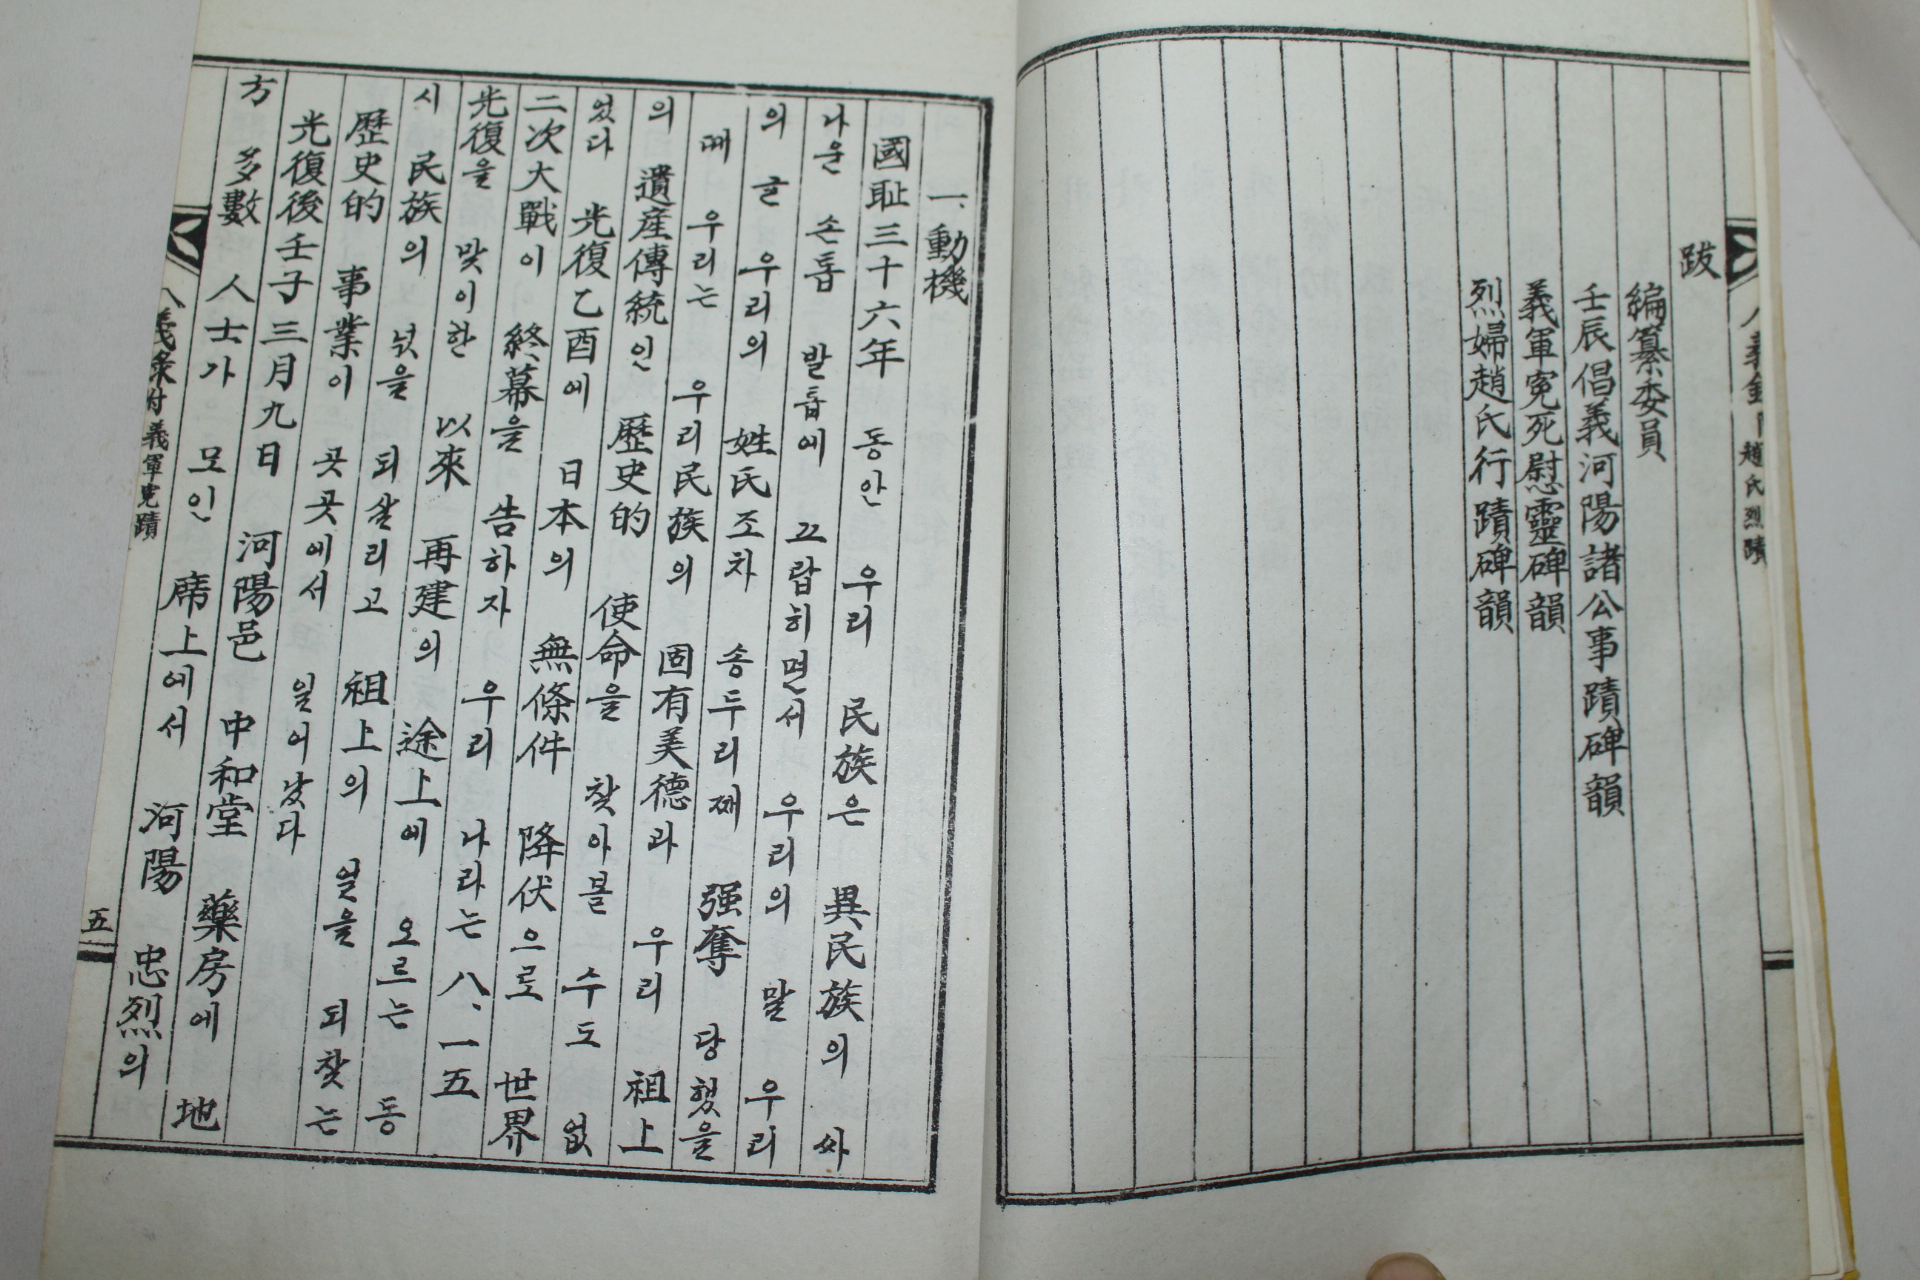 八義錄附趙氏烈蹟
跋
編纂委員
壬辰倡義河陽諸公事蹟碑韻
義軍寃死慰靈碑韻
烈婦趙氏行蹟碑韻
一、動機
國耻三十六年 동안 우리 民族은 異民族의 싸
나운 손톱 발톱에 끄랍히면서 우리의 말 우리
의 글 우리의 姓氏조차 송두리째 强奪 당했을
때 우리는 우리民族의 固有美德과 우리 祖上
의 遺産傳統인 歷史的 使命을 찾아볼 수도 없
었다 光復乙酉에 日本의 無條件 降伏으로 世界
二次大戰이 終幕을 告하자 우리 나라는 八、一五
光復을 맞이한 以來 再建의 途上에 오르는 동
시 民族의 넋을 되살리고 祖上의 얼을 되찾는
歷史的 事業이 곳곳에서 일어났다
光復後壬子三月九日 河陽邑 中和堂 藥房에 地
方 多數 人士가 모인 席上에서 河陽 忠烈의
八義錄附義軍寃蹟
五